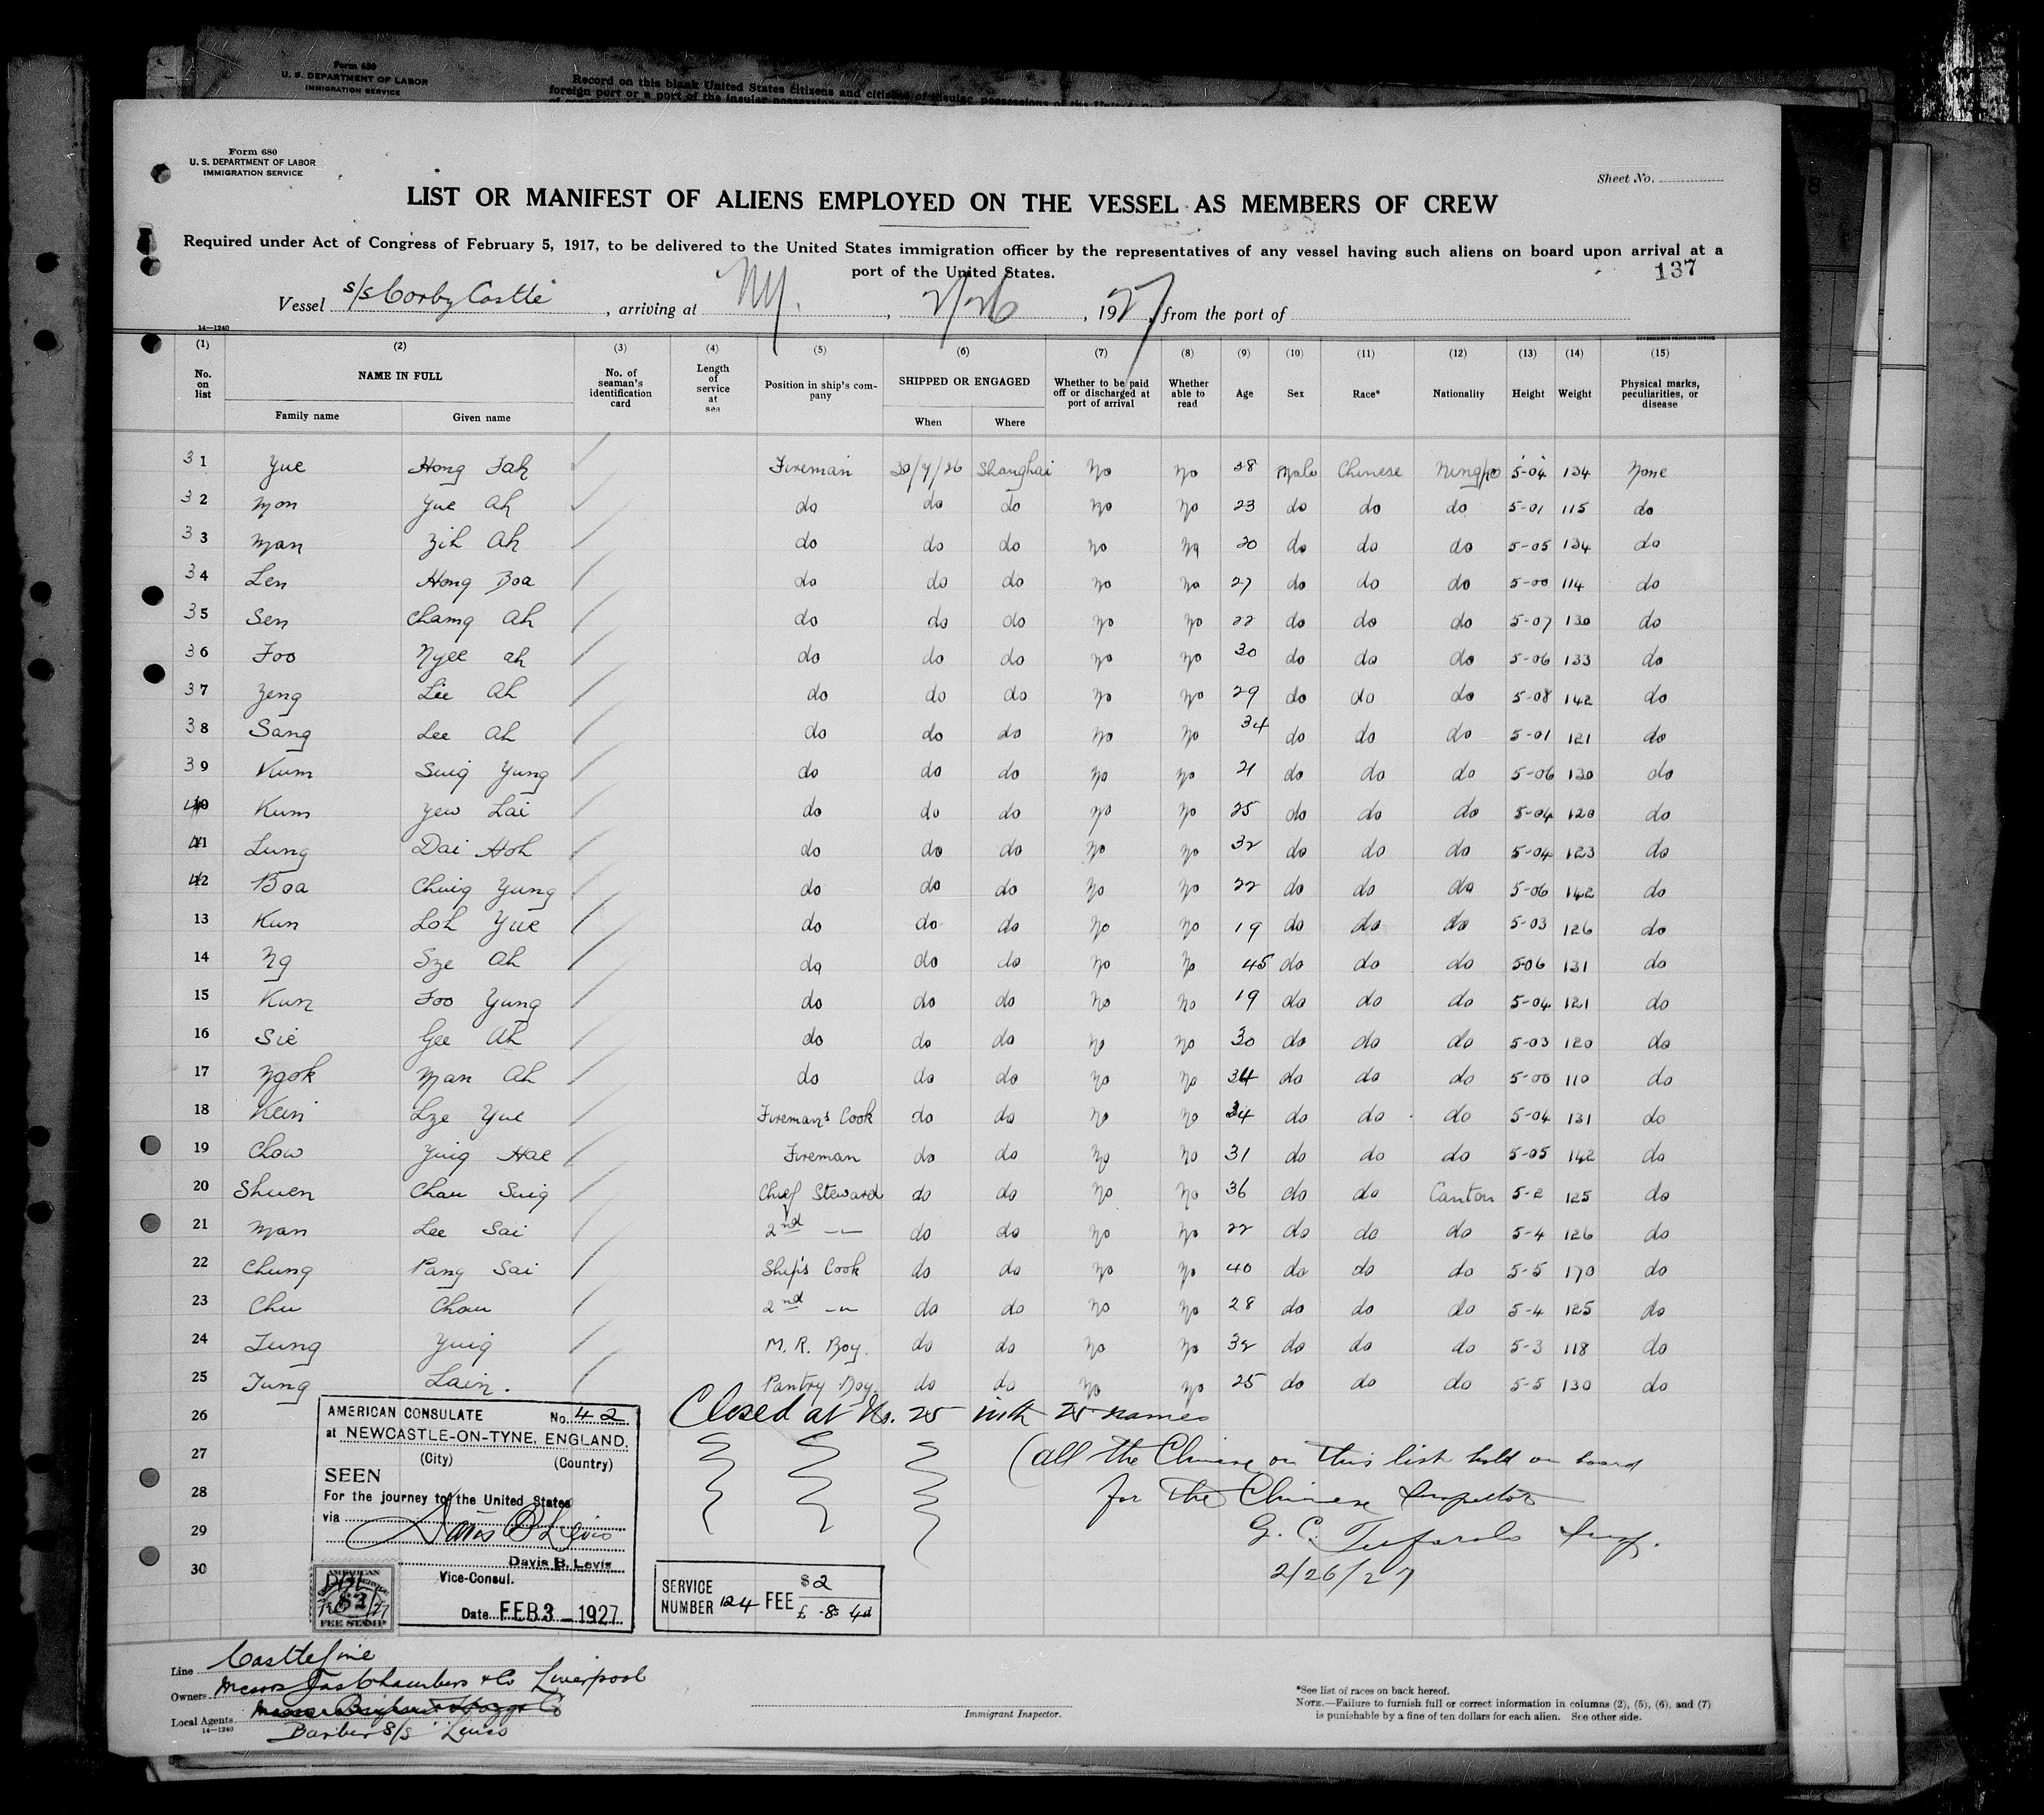 Form 680
U. S. DEPARTMENT OF LABOR
IMMIGRATION SERVICE
Record on this blank United States citizens and citizens of insular possessions
foreign port or a port of the insular possessions
Form 680
U. S. DEPARTMENT OF LABOR
IMMIGRATION SERVICE
Sheet No.
LIST OR MANIFEST OF ALIENS EMPLOYED ON THE VESSEL AS MEMBERS OF CREW
Required under Act of Congress of February 5, 1917, to be delivered to the United States immigration officer by the representatives of any vessel having such aliens on board upon arrival at a
port of the United States.
137
Vessel s/s Corby Castle, arriving at NY., 2/26, 1927, from the port of
14—1240
(1) (2) (3) (4) (5) (6) (7) (8) (9) (10) (11) (12) (13) (14) (15)
No. on list NAME IN FULL Family name Given name No. of seaman's identification card Length of service at sea Position in ship's company SHIPPED OR ENGAGED When Where Whether to be paid off or discharged at port of arrival Whether able to read Age Sex Race* Nationality Height Weight Physical marks, peculiarities, or disease
31 Yue Hong Fah Fireman 30/7/26 Shanghai No No 38 Male Chinese Ningpo 5-04 134 None
32 Mon Yue Ah do do do No No 23 do do do 5-01 115 do
33 Man Zih Ah do do do No No 20 do do do 5-05 134 do
34 Len Hong Boa do do do No No 27 do do do 5-00 114 do
35 Sen Chang Ah do do do No No 22 do do do 5-07 130 do
36 Foo Nyee Ah do do do No No 30 do do do 5-06 133 do
37 Zeng Lie Ah do do do No No 29 do do do 5-08 142 do
38 Sang Lee Ah do do do No No 34 do do do 5-01 121 do
39 Kum Suig Yung do do do No No 21 do do do 5-06 130 do
40 Kum Yew Lai do do do No No 25 do do do 5-04 120 do
41 Lung Dai Hoh do do do No No 32 do do do 5-04 123 do
42 Boa Chuig Yung do do do No No 22 do do do 5-06 142 do
13 Kun Loh Yue do do do No No 19 do do do 5-03 126 do
14 Ng Sze Ah do do do No No 45 do do do 5-06 131 do
15 Kun Foo Yung do do do No No 19 do do do 5-04 121 do
16 Sie Gee Ah do do do No No 30 do do do 5-03 120 do
17 Ngok Man Ah do do do No No 34 do do do 5-00 110 do
18 Kein Lze Yue Fireman's Cook do do No No 34 do do do 5-04 131 do
19 Chow Ying Hae Fireman do do No No 31 do do do 5-05 142 do
20 Shuen Chau Suig Chief Steward do do No No 36 do do Canton 5-2 125 do
21 Man Lee Sai 2nd —"— do do No No 22 do do do 5-4 126 do
22 Chung Pang Sai Ship's Cook do do No No 40 do do do 5-5 170 do
23 Chu Chau 2nd —"— do do No No 28 do do do 5-4 125 do
24 Tung Ying M. R. Boy. do do No No 32 do do do 5-3 118 do
25 Tung Lain. Pantry Boy. do do No No 25 do do do 5-5 130 do
26 Closed at No. 25 with 25 names
27 (All the Chinese on this list held on board
28 for the Chinese Inspector
29 G. C. Tufarolo Insp.
30 2/26/27
AMERICAN CONSULATE No. 42
at NEWCASTLE-ON-TYNE, ENGLAND.
(City) (Country)
SEEN
For the journey to the United States
via
Davis B. Levis
Davis B. Levis
Vice-Consul.
Date FEB 3 - 1927
AMERICAN
$2
FEE STAMP
SERVICE NUMBER 124 FEE $2
£ -8s 4d
Line Castle Line
Owners Messrs Jas Chambers & Co Liverpool
Local Agents
14—1240
Barber S/S Lines
Immigrant Inspector.
*See list of races on back hereof.
NOTE.—Failure to furnish full or correct information in columns (2), (5), (6), and (7)
is punishable by a fine of ten dollars for each alien. See other side.